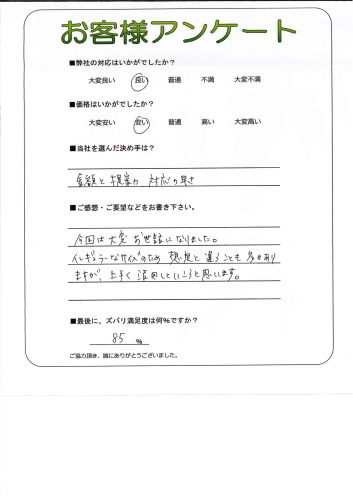 お客様アンケート
■弊社の対応はいかがでしたか？
大変良い 良い 普通 不満 大変不満
■価格はいかがでしたか？
大変安い 安い 普通 高い 大変高い
■当社を選んだ決め手は？
金額と提案力 対応の早さ
■ご感想・ご要望などをお書き下さい。
今回は大変お世話になりました。
イレギュラーなサイズのため 想定と違うことも多々あり
ますが、上手く活用していこうと思います。
■最後に、ズバリ満足度は何%ですか？
85 %
ご協力頂き、誠にありがとうございました。